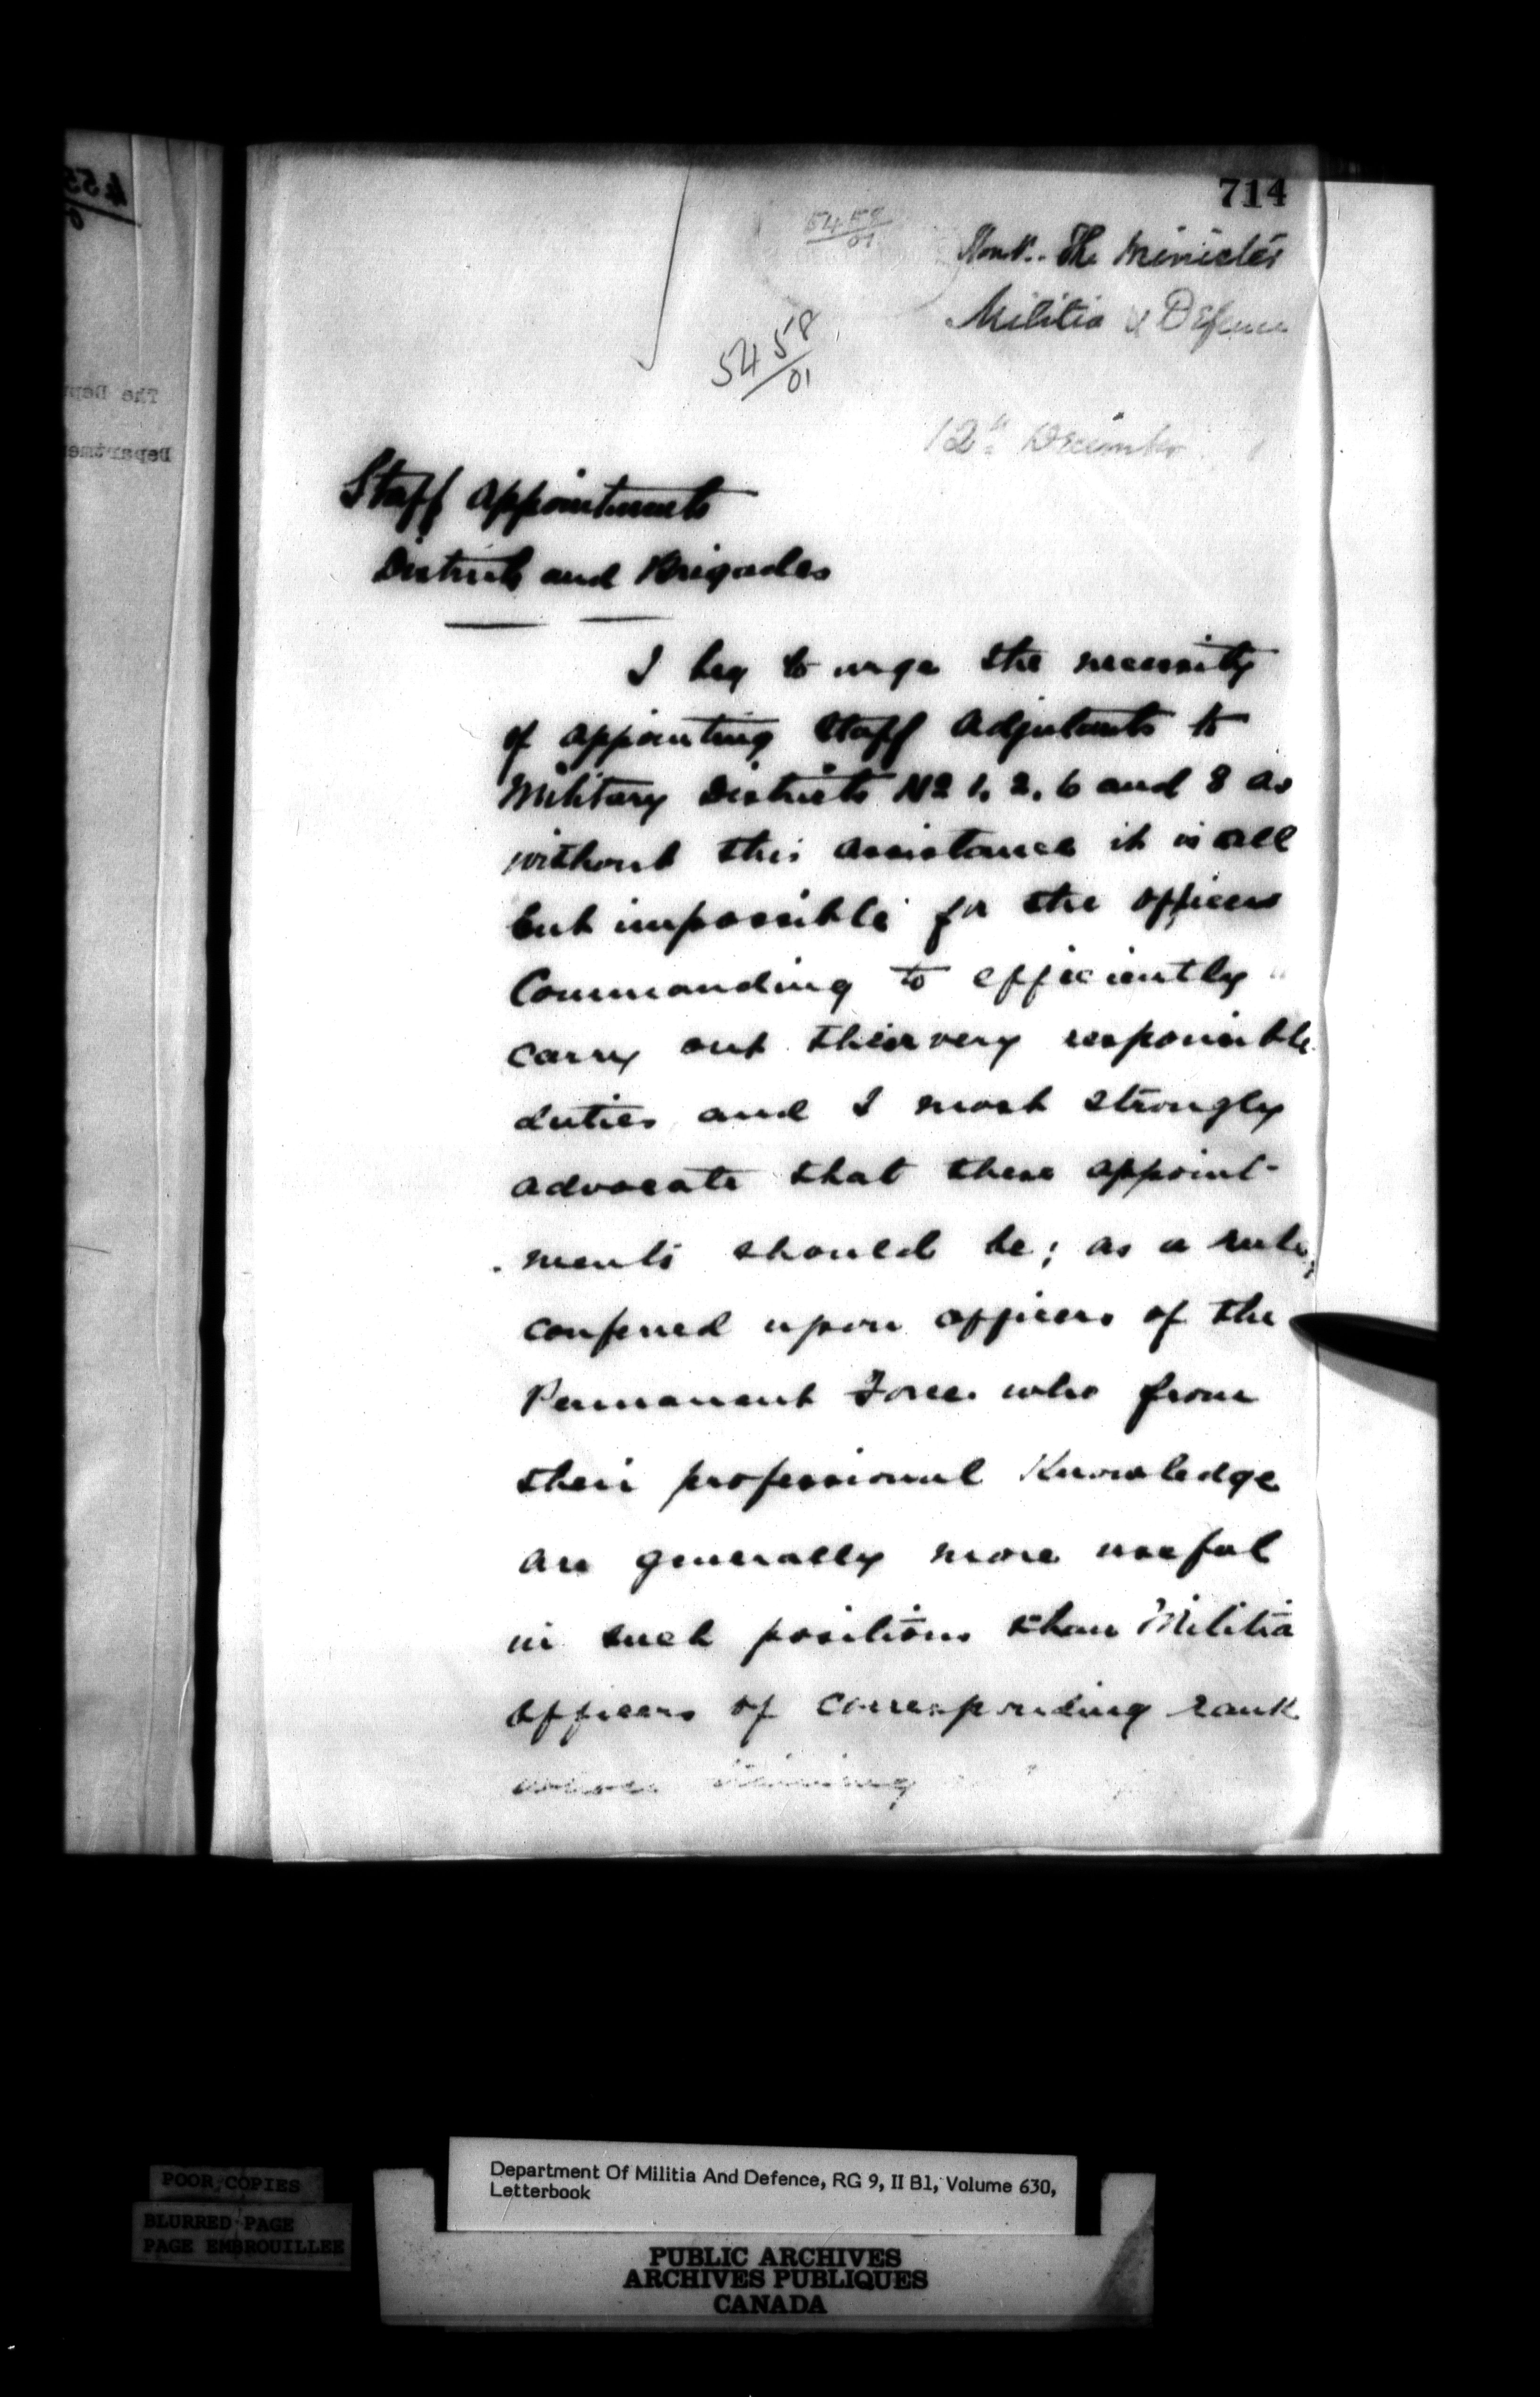 714
5458/01
Honbl. The Minister
Militia & Defence
5458/01
12th December
Staff Appointments
Districts and Brigades
I beg to urge the necessity
of appointing Staff Adjutants to
Military Districts No 1, 2, 6 and 8 as
without this assistance it is all
but impossible for the officers
Commanding to efficiently
carry out their very responsible
duties and I most strongly
advocate that these appoint-
ments should be; as a rule,
conferred upon officers of the
Permanent Force who from
their professional Knowledge
are generally more useful
in such positions than Militia
officers of corresponding rank
whose training
POOR COPIES
BLURRED PAGE
PAGE EMBROUILLEE
Department Of Militia And Defence, RG 9, II B1, Volume 630,
Letterbook
PUBLIC ARCHIVES
ARCHIVES PUBLIQUES
CANADA